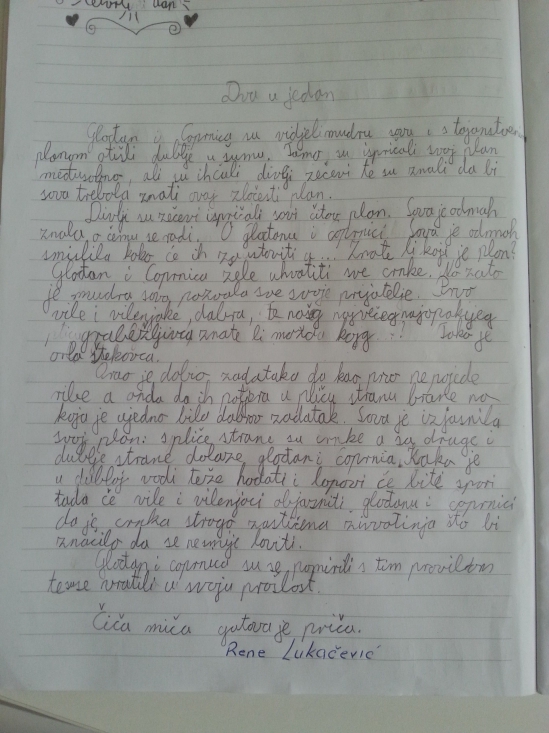 Dva u jedan
Glođan i Coprnica su vidjeli mudru sovu i s tajanstvenim
planom otišli dublje u šumu. Tamo su ispričali svoj plan
međusobno, ali su ih čuli divlji zečevi te su znali da bi
sova trebala znati ovaj zločesti plan.
Divlji su zečevi ispričali sovi čitav plan. Sova je odmah
znala o čemu se radi. O glođanu i coprnici sova je odmah
smislila kako će ih zaustoviti a... Znate li koji je plan?
Glođan i Coprnica žele uhvatiti sve crnke. Pa zato
je mudra sova pozvala sve svoje prijatelje. Prvo
vile i vilenjake, dabra, te našeg najvećeg najopakijeg
grabežljivca znate li možda kojg ?! Tako je
orla štekavca.
Orao je dobio zadataka da kao prvo ne pojede
ribe a onda da ih potjera u pliću stranu brane na
koja je ujedno bila dabrov zadatak. Sova je izjasnila
svoj plan: s pliće strane su crnke a sa druge i
dublje strane dolaze glođan i coprnia. Kako je
u dubljoj vodi teže hodati i lopovi će biti spori
tada će vile i vilenjaci objasniti glođanu i coprnici
da je crnka strogo zaštićena životinja što bi
značilo da se ne smije loviti.
Glođan i coprnica su se pomirili s tim pravilom
te su se vratili u svoju prošlost.
Čiča miča gotova je priča.
Rene Lukačević